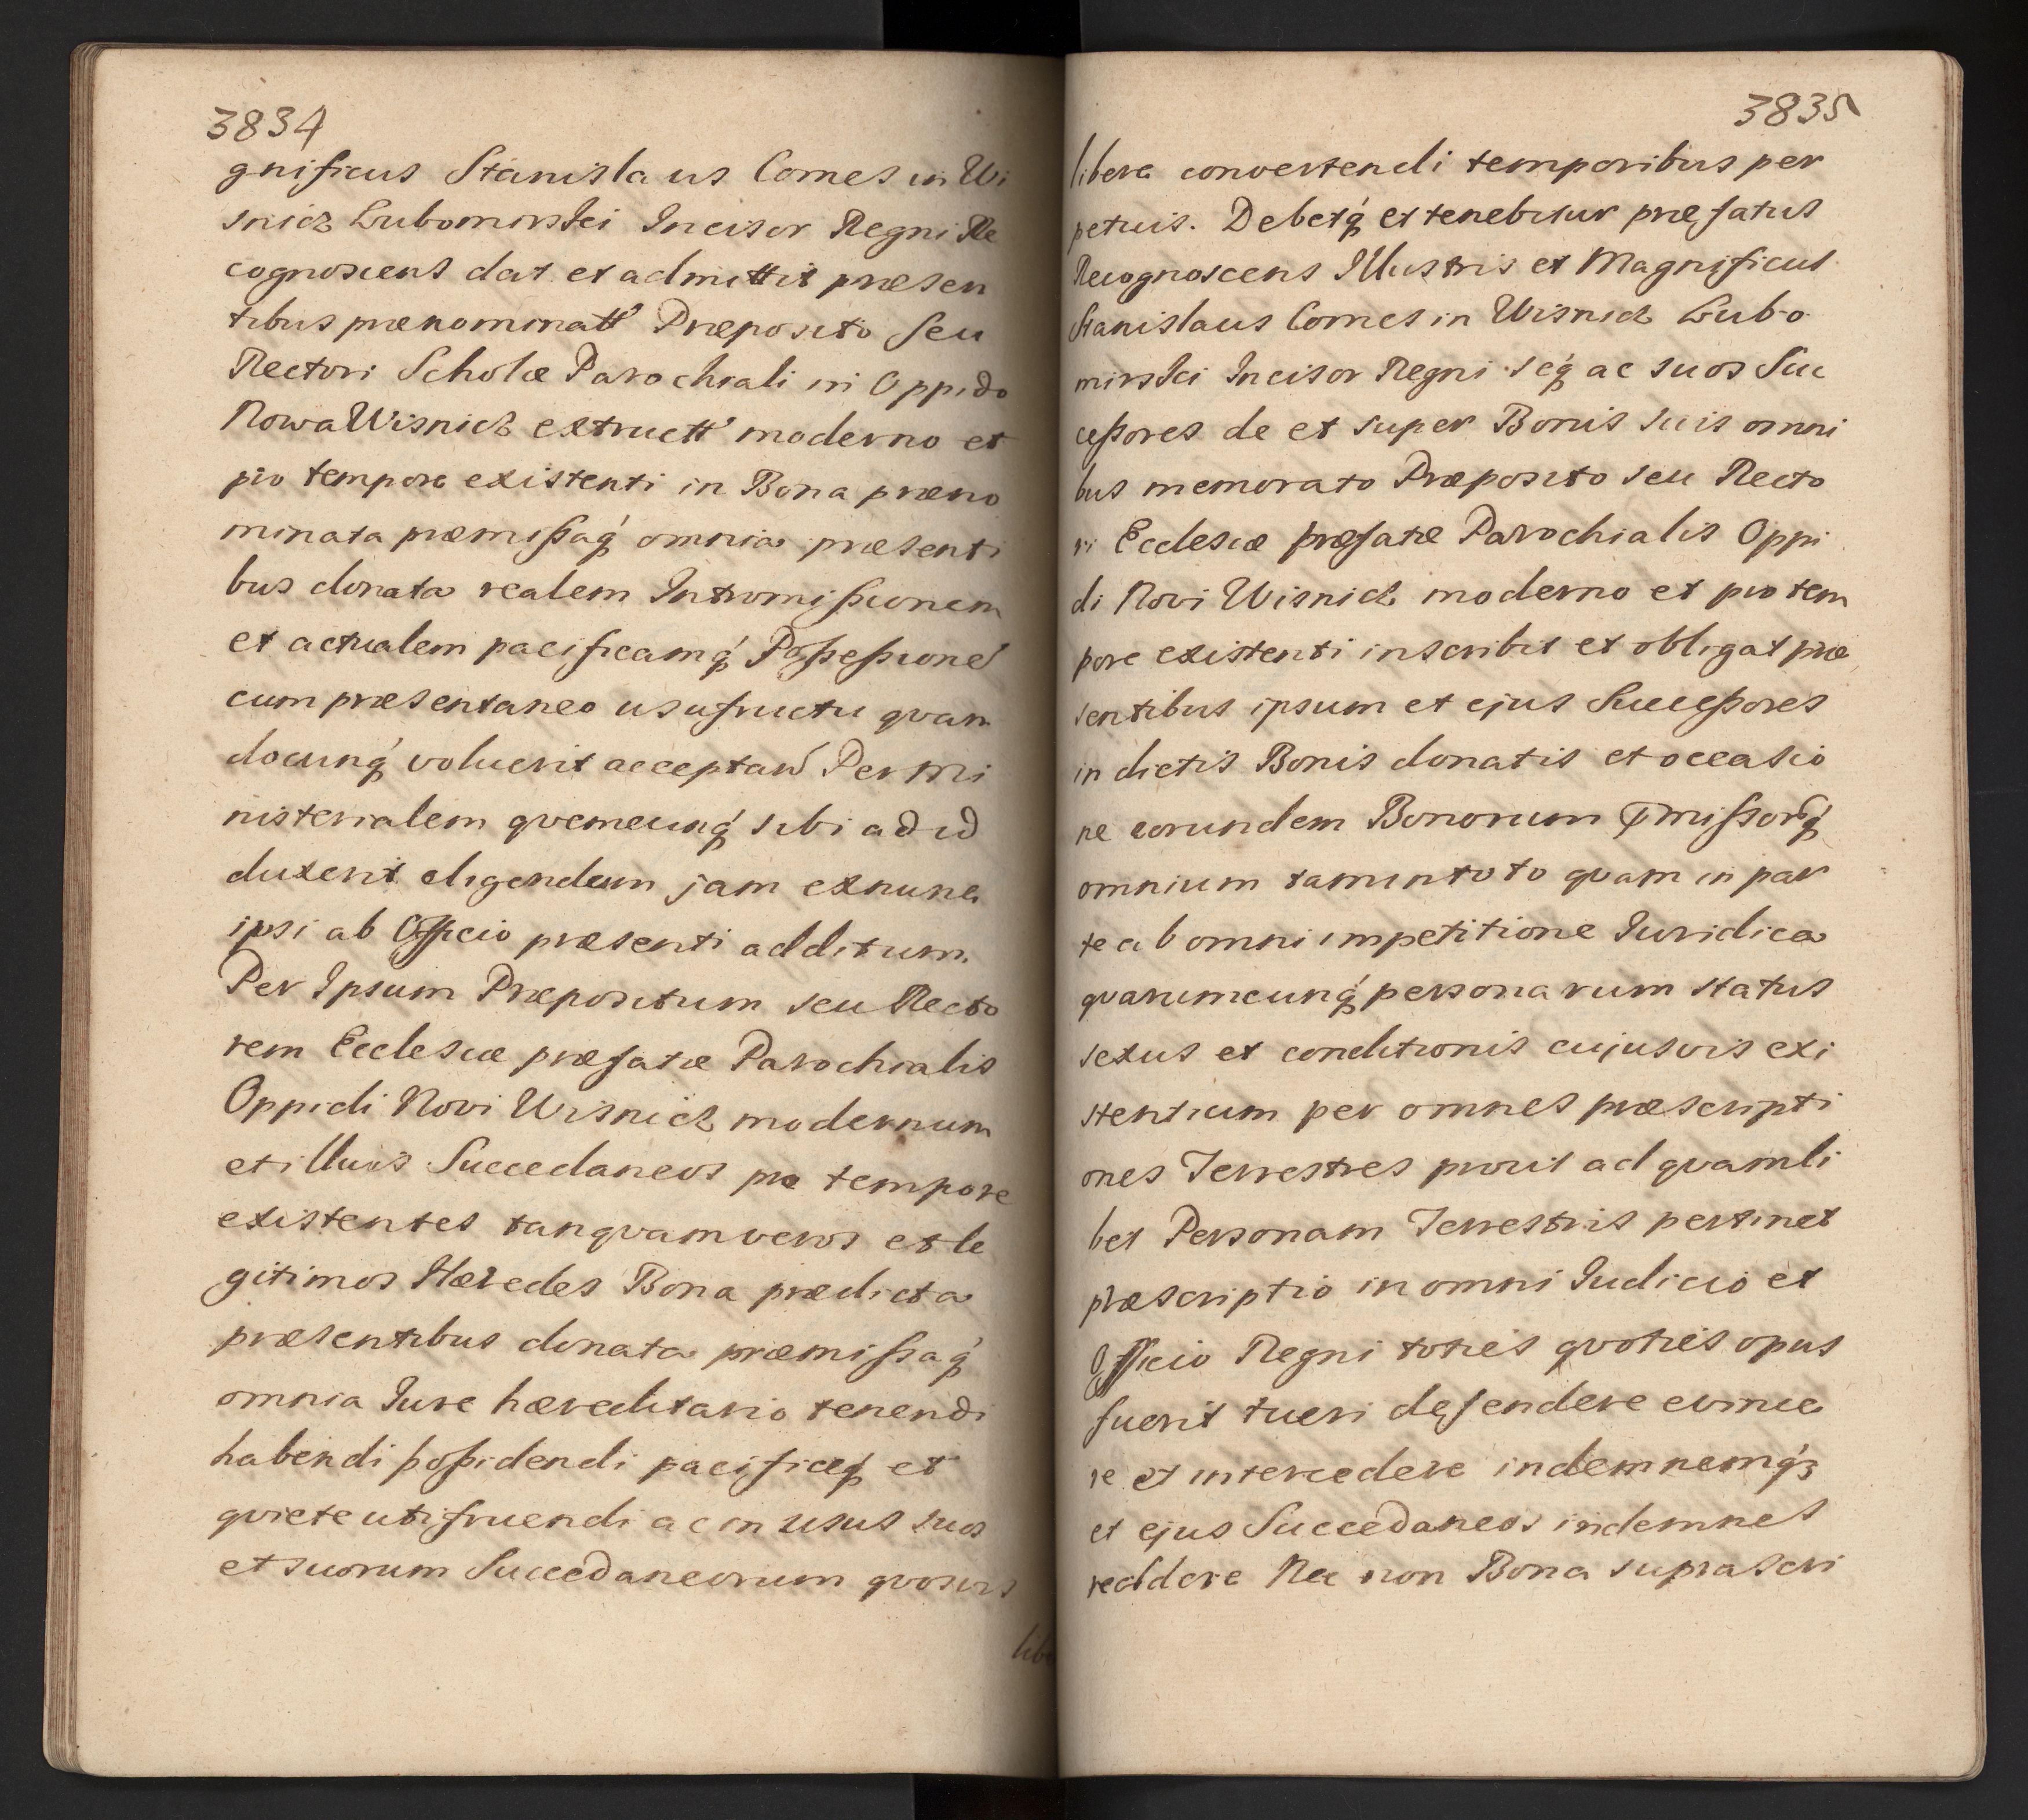 3834
gnificus Stanislaus Comes in Wi
snicz Lubomirski Incisor Regni Re
cognoscens dat et admittit præsen
tibus prænominatt Præposito seu
Rectori Scholæ Parochiali in Oppido
Nowa Wisnicz extructt moderno et
pro tempore existenti in Bona præno
minata præmissaq́ omnia præsenti
bus donata realem Intromissionem
et actualem pacificamq́ Possessione
cum præsentaneo usufructu quan
docunq́ voluerit acceptand Per Mi
nisterialem quemcunq́ sibi ad id
duxerit eligendum jam exnunc
ipsi ab Officio præsenti additum.
Per Ipsum Præpositum seu Recto
rem Ecclesiæ præfatæ Parochialis
Oppidi Novi Wisnicz modernum
et illius Succedaneos pro tempore
existentes tanquam veros et le
gitimos Hæredes Bona prædicta
præsentibus donata præmissaq́
omnia Jure hæreditario tenendi
habendi possidendi pacificeq et
quiete utifruendi ac in usus suos
et suorum Succedaneorum quosvis
3835
libere convertendi temporibus per
petuis. Debetq́ et tenebitur præfatus
Recognoscens Illustris et Magnificus
Stanislaus Comes in Wisnicz Lubo
mirski Incisor Regni seq́ ac suos Suc
cessores de et super Bonis suis omni
bus memorato Præposito seu Recto
ri Ecclesiæ præfatæ Parochialis Oppi
di Novi Wisnicz moderno et pro tem
pore existenti inscribit et obligat præ
sentibus ipsum et ejus Successores
in dictis Bonis donatis et occasio
ne eorundem Bonorum
omnium tam in toto quam in par
te ab omni impetitione Juridica
quarumcunq́ personarum status
sexus et conditionis cujusvis exi
stentium per omnes præscripti
ones Terrestres prout ad quamli
bet Personam Terrestris pertinet
præscriptio in omni Judicio et
Officio Regni toties quoties opus
fuerit tueri defendere evince
re et intercedere indemnemq́3
et ejus Succedaneos indemnes
reddere Nec non Bona suprascri